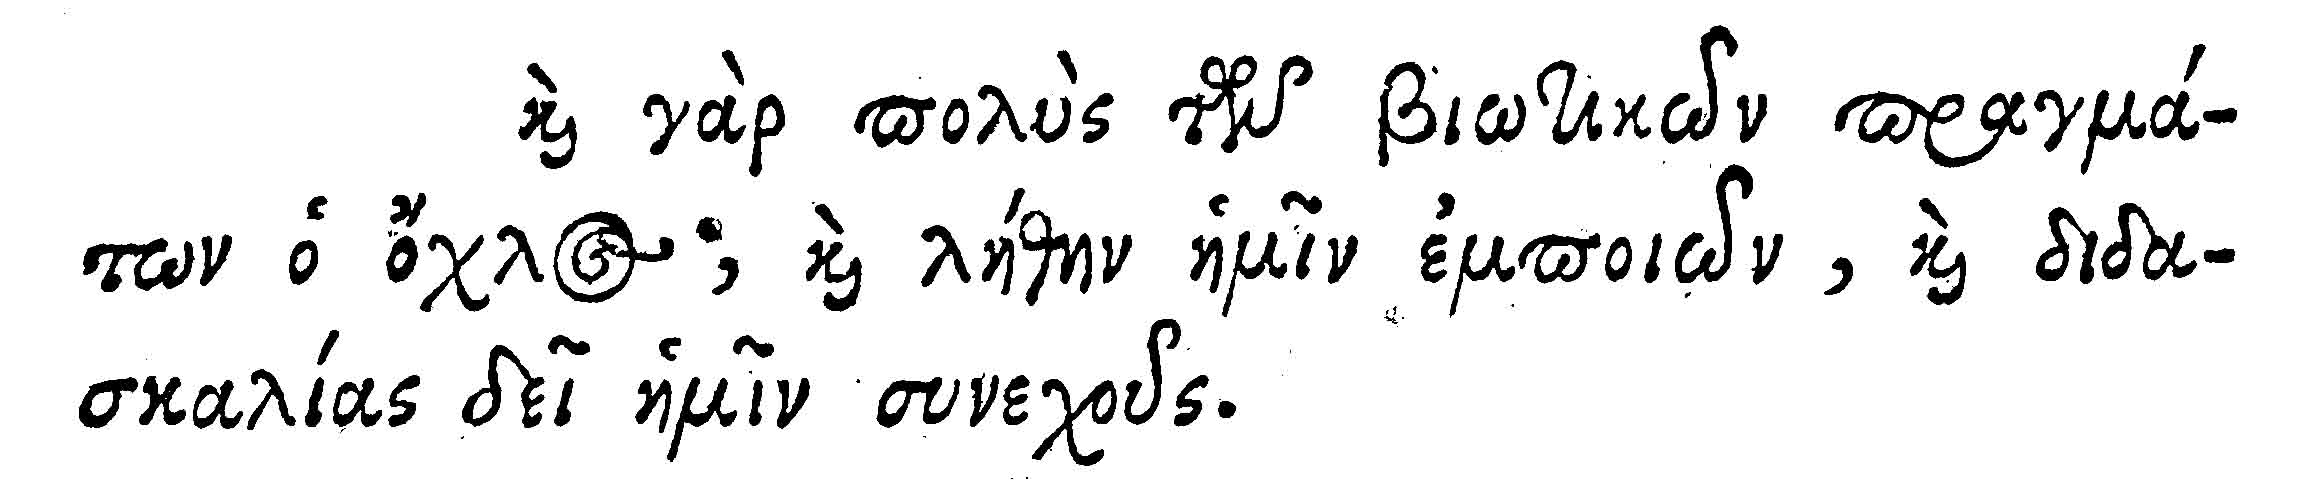 καὶ γὰρ πολὺς τῶν βιωτικῶν πραγμά-
των ὁ ὄχλος, καὶ λήθην ἡμῖν ἐμποιῶν, καὶ διδα-
σκαλίας δεῖ ἡμῖν συνεχοῦς.